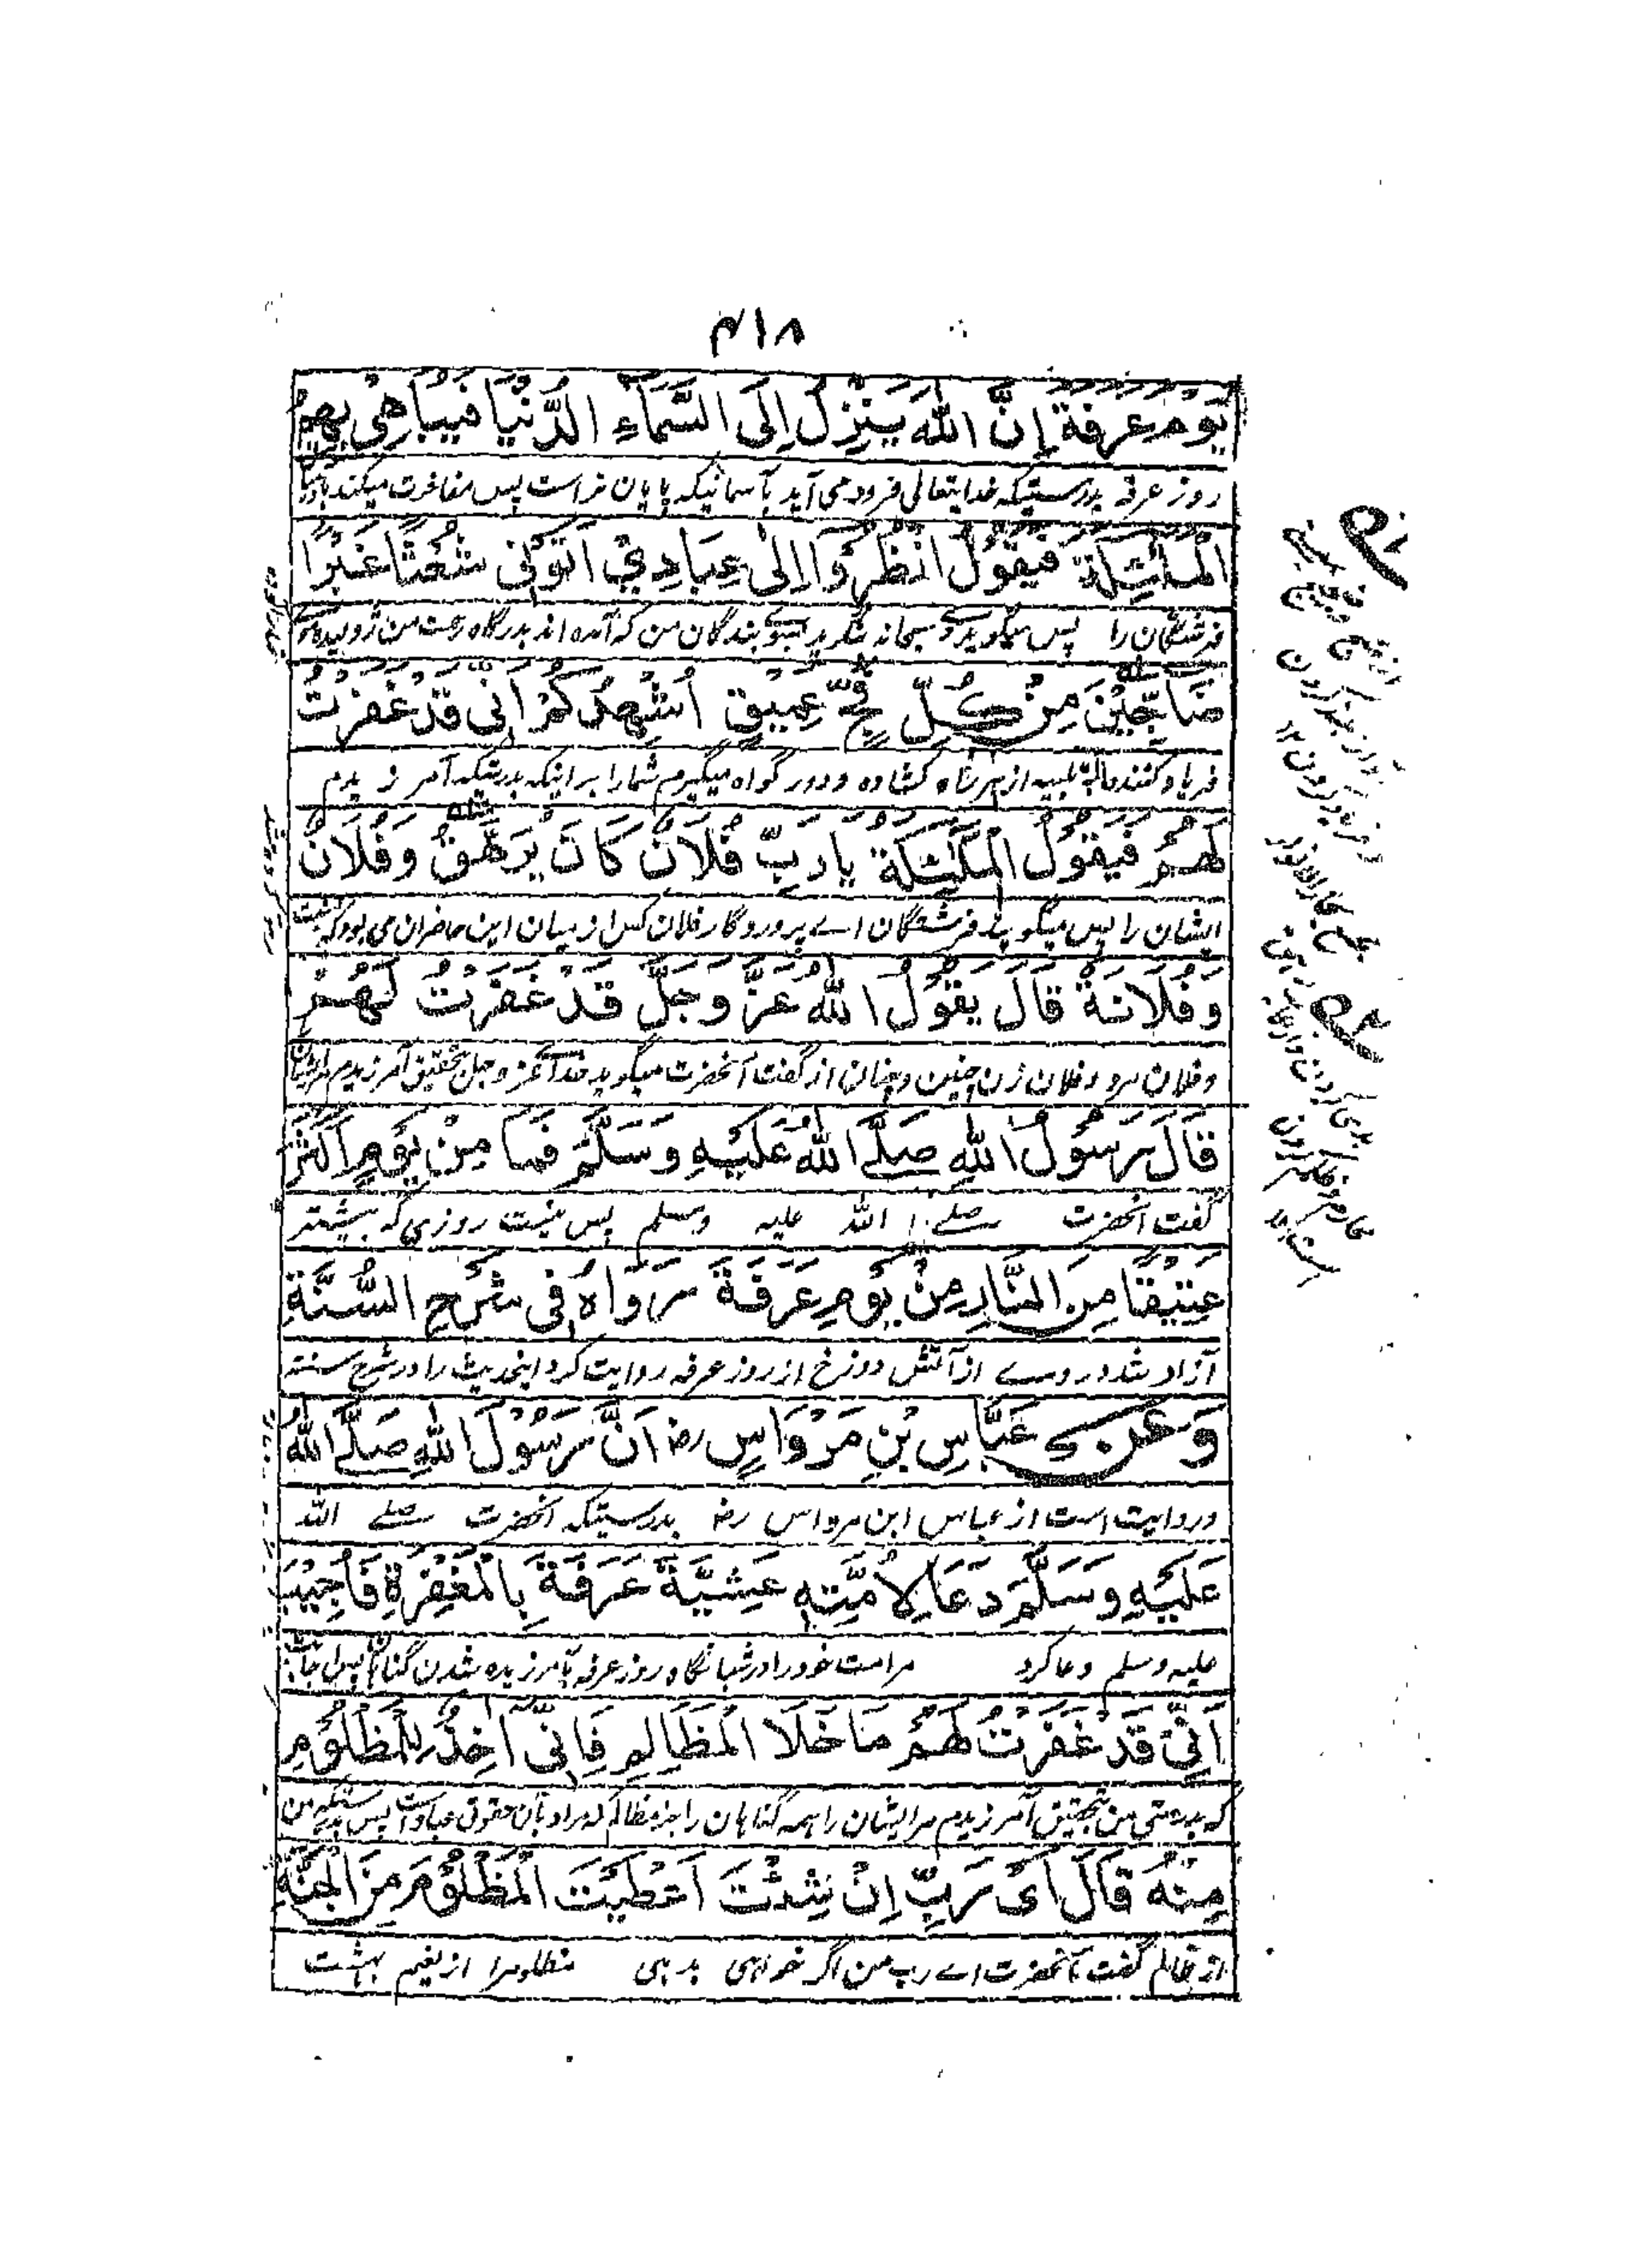 ۴۱۸
يَوْمُ عَرَفَةَ إِنَّ اللهَ يَنْزِلُ إِلَى السَّمَاءِ الدُّنْيَا فَيُبَاهِى بِهِمُ
روز عرفه بدرستیکه خدایتعالی فرود می آید بآسمانیکه پایان تر است پس مفاخرت میکند
الْمَلٰئِكَةَ فَيَقُوْلُ انْظُرُوْا اِلٰى عِبَادِيْ اَتَوْنِى شُعْثًا غُبْرًا
فرشتگان را پس میگوید سبحانه بنگرید بسوے بندگان من که آمده اند بدرگاه رحمت من ژولیده
ضَاجِّيْنَ مِنْ كُلِّ فَجٍّ عَمِيْقٍ اُشْهِدُكُمْ اَنِّى قَدْ غَفَرْتُ
فریاد کنندها به تلبیه از هر راه کشاده و دور گواه میگیرم شما را بر اینکه بدرستیکه آمرزیدم
لَهُمْ فَيَقُوْلُ الْمَلٰئِكَةُ يَارَبِّ فُلَانٌ كَانَ يُرَهَّقُ وَفُلَانٌ
ایشان را پس میگویند فرشتگان اے پروردگار فلان کس از میان این حاضران می بود که
وَفُلَانَةُ قَالَ يَقُوْلُ اللهُ عَزَّ وَجَلَّ قَدْ غَفَرْتُ لَهُمْ
و فلان مرد و فلان زن چنین و چنان اند گفت آنحضرت میگوید خدا عز و جل بتحقیق آمرزیدم
قَالَ رَسُوْلُ اللهِ صَلَّے اللهُ عَلَيْهِ وَسَلَّمَ فَمَا مِنْ يَوْمٍ اَكْثَرَ
گفت آنحضرت صلے الله علیه وسلم پس نیست روزی که بیشتر
عَتِيْقًا مِنَ النَّارِ مِنْ يَوْمِ عَرَفَةَ رَوَاهُ فِى شَرْحِ السُّنَّةِ
آزاد شد در وے از آتش دوزخ از روز عرفه روایت کرد اینحدیث را در شرح سنته
وَعَنْ عَبَّاسِ بْنِ مَرْوَاسٍ رض اَنَّ رَسُوْلَ اللهِ صَلَّے اللهُ
و روایت است از عباس ابن مرواس رض بدرستیکه آنحضرت صلے الله
عَلَيْهِ وَسَلَّمَ دَعَا لِاُمَّتِهٖ عَشِيَّةَ عَرَفَةَ بِالْمَغْفِرَةِ فَاُجِيْبَ
علیه وسلم دعا کرد مر امت خود را در شبانگاه روز عرفه بآمرزیده شدن گناهان پس
اَنِّى قَدْ غَفَرْتُ لَهُمْ مَا خَلَا الْمَظَالِمِ فَاِنِّى اٰخِذٌ لِلْمَظْلُوْمِ
که بدرستی من بتحقیق آمرزیدم مر ایشان را همه گناهان را جز مظالم که مراد بآن حقوق عباد است پس بدرستیکه من
مِنْهُ قَالَ اَىْ رَبِّ اِنْ شِئْتَ اَعْطَيْتَ الْمَظْلُوْمَ مِنَ الْجَنَّةِ
از ظالم گفت آنحضرت اے رب من اگر خواهی بدهی مظلوم را از نعیم بهشت